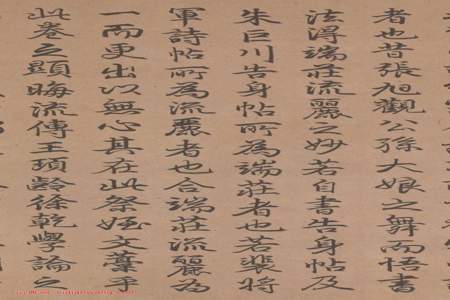 者也昔張旭觀公孫大娘之舞而悟書
法淂端莊流麗之妙若自書告身帖及
朱巨川告身帖所為端莊者也若裴將
軍詩帖所為流麗者也合端莊流麗為
一而更出以無心其在此祭姪文藁乎
此卷之顯晦流傳王頊齡徐乾學論之